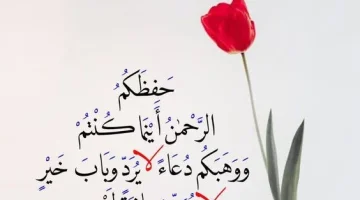 حَفِظَكُمُ
الرَّحْمٰنُ أَيْنَمَا كُنْتُمْ
وَوَهَبَكُم دُعَاءً لا يُرَدّ وَبَابَ خَيْرٍ